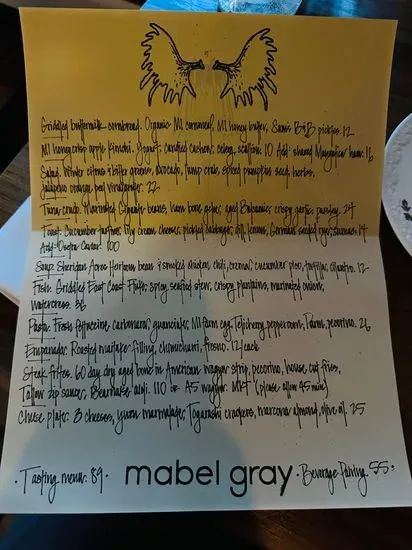 Griddled buttermilk cornbread. Organic MI cornmeal, MI honey butter, Sam's B&B pickles. 12
MI honeycrisp apple kimchi. Yogurt, candied cashew, celery, scallion. 10 Add: shaved Mangalitsa ham. 16
Salad. Winter citrus & bitter greens, avocado, lump crab, spiced pumpkin seed, herbs,
jalapeño orange vinaigrette. 22
Tuna crudo. Marinated Gigante beans, ham bone, aged Balsamic, crispy garlic, parsley. 24
Toast. Cucumber, cream cheese, pickled cabbage, dill, lemon, German seeded rye, 14
Add: Osetra Caviar. 100
Soup. Sheridan Acres Heirloom bean & smoked chicken chili, crema, cucumber pico, tortilla, cilantro. 12
Fish. Griddled East Coast Fluke, spicy seafood stew, crispy plantains, marinated onion,
Watercress. 36
Pasta. Fresh fettuccine carbonara, guanciale, MI farm egg, Tellicherry peppercorn, Parm, pecorino. 26
Empanada. Roasted maitake filling, chimichurri, fresno. 12/each
Steak frites. 60 day dry aged bone in American wagyu strip, pecorino, house cut fries,
Tallow zip sauce, Bearnaise aioli. 110 or A5 wagyu. MKT (please allow 45 min)
Cheese plate. 3 cheeses, yuzu marmalade, Togarashi crackers, marcona almond, olive oil. 25
· Tasting menu. 89 · mabel gray · Beverage Pairing. 55 ·